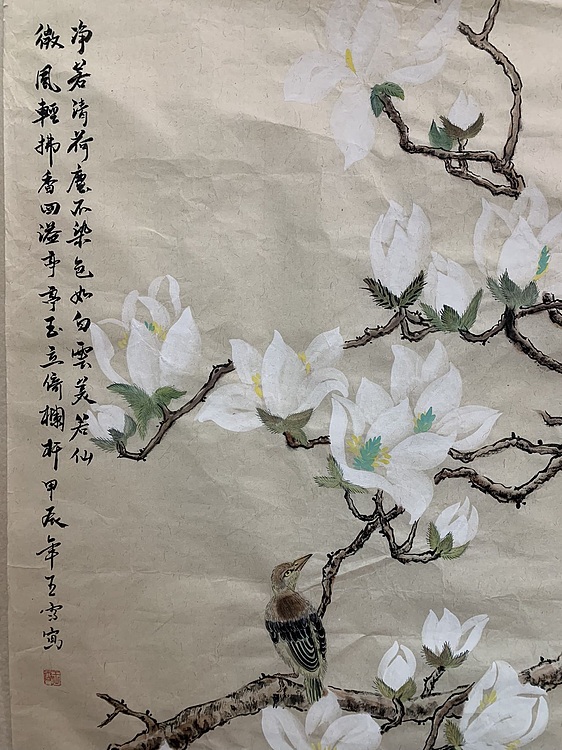 净若清荷塵不染色如白雲美若仙
微風輕拂香四溢亭亭玉立倚欄杆甲辰年王雪寫